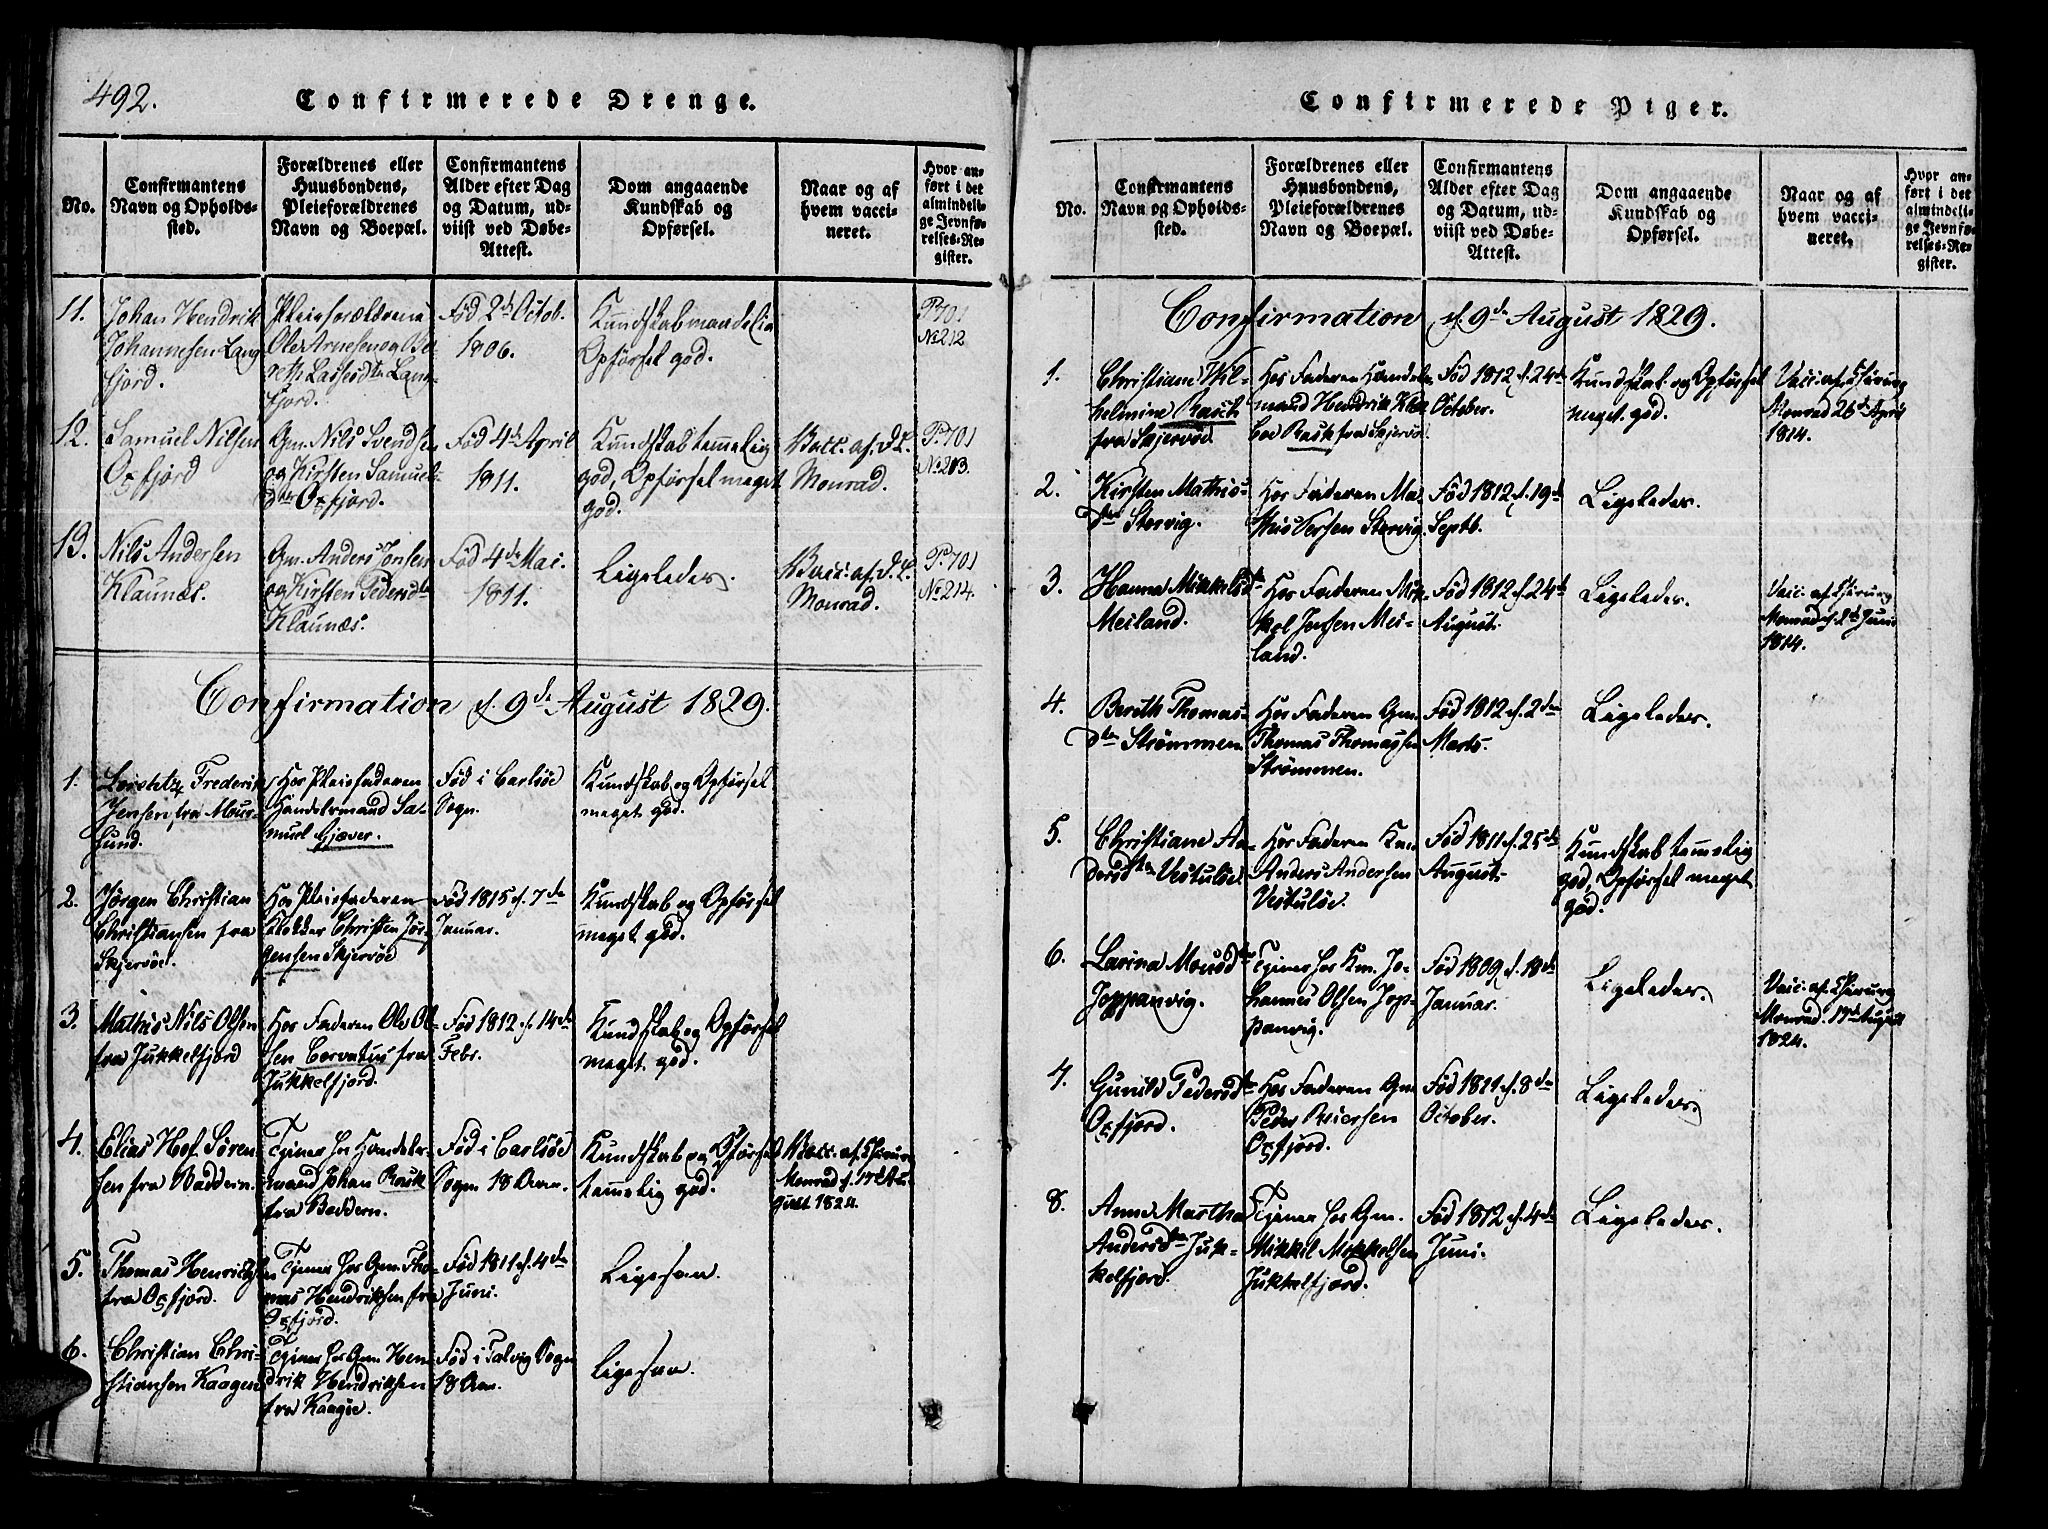 492.
Confirmerede Drenge.
No.
Confirmantens
Navn og Opholds-
sted.
Forældrenes eller
Huusbondens,
Pleieforældrenes
Navn og Boepæl.
Confirmantens
Alder efter Dag
og Datum, ud-
viist ved Døbe-
Attest.
Dom angaaende
Kundskab og
Opførsel.
Naar og af
hvem vacci-
neret.
Hvor an-
ført i det
almindeli-
ge Jevnfø-
relses-Re-
gister.
11.
Johan Hendrik
Johannesen Lang
fjord.
Pleieforældrene
Ole Arnesen og Be-
reth Lassesdtr Lang-
fjord.
Fød 2de Octob.
1806.
Kundskab maadelig
Opførsel god.
P. 701
No 212
12.
Samuel Nilsen
Oxfjord
Gm. Nils Svendsen
og Kirsten Samuels-
dter Oxfjord.
Fød 4de April
1811.
Kundskab temmelig
god, Opførsel meget
god.
Vacc. af. D. L.
Monrad.
P. 701
No 213.
13.
Nils Andersen
Klaunæs.
Gm. Anders Jonsen
og Kirsten Pedersdtr
Klaunæs.
Fød 4de Mai.
1811.
Ligeledes.
Vacc. af. D. L.
Monrad.
P. 701
No 214.
Confirmation d. 9de August 1829.
1.
Lorentz Frederik
Jensen fra Maur-
sund.
Hos Pleiefaderen
Handelsmand Sa-
muel Gjæver.
Fød i Carlsöe
Sogn.
Kundskab og Opførsel
meget god.
2.
Jørgen Christian
Christiansen fra
Skjervöe.
Hos Pleiefaderen
Klokker Christen Jør-
gensen Skjervöe
Fød 1815 d. 7de
Januar.
Kundskab og Opførsel
meget god.
3.
Mathis Nils Olsen
fra Jukkelfjord
Hos Faderen Ole Ol-
sen Corvatus fra
Jukkelfjord.
Fød 1812 d. 14de
Febr.
Kundskab og Opførsel
meget god.
4.
Elias Hof Søren
sen fra Baddern.
Tjener hos Handels-
mand Johan Rask
fra Baddern.
Fød i Carlsöe
Sogn 18 Aar.
Kundskab og Opførsel
temmelig god.
Vacc. af Chirurg
Monrad d. 17de Au-
gust 1824.
5.
Thomas Henriksen
fra Oxfjord.
Tjener hos Gm. Tho-
mas Hendriksen fra
Oxfjord.
Fød 1811 d. 4de
Juni.
Ligesaa.
6.
Christian Chri-
stiansen Kaagen
Tjener hos Gm. Hen-
drik Hendriksen
fra Kaagöe.
Fød i Talvig Sogn
18 Aar.
Ligesaa.
Confirmerede Piger.
No.
Confirmantens
Navn og Opholds-
sted.
Forældrenes eller
Huusbondens,
Pleieforældrenes
Navn og Boepæl.
Confirmantens
Alder efter Dag
og Datum, ud-
viist ved Døbe-
Attest.
Dom angaaende
Kundskab og
Opførsel.
Naar og af
hvem vacci-
neret.
Hvor an-
ført i det
almindeli-
ge Jevnfø-
relses-Re-
gister.
Confirmation d. 9de August 1829.
1.
Christiane Wil-
helmine Rasch
fra Skjervöe
Hos Faderen Handels-
mand Hendrik
Rask fra Skjervöe.
Fød 1812 d. 24de
October.
Kundskab og Opførsel
meget god.
Vacc. af Chirurg
Monrad 26de April
1814.
2.
Kirsten Mathis-
dter Storvig.
Hos Faderen Ma-
this Iversen Storvig.
Fød 1812 d. 19de
Septb.
Ligeledes.
3.
Hanna Mikkelsdtr
Meiland.
Hos Faderen Mik-
kel Jensen Mei-
land.
Fød 1812 d. 24de
August.
Ligeledes.
Vacc. af Chirurg
Monrad d. 2de Juni
1814.
4.
Bereth Thomas-
dter Strömmen.
Hos Faderen Gm.
Thomas Thomassen
Strömmen.
Fød 1812 d. 2den
Marts.
Ligeledes.
5.
Christiane An-
dersdter Vestulöe.
Hos Faderen
Anders Andersen
Vestulöe.
Fød 1811 d. 25de
August.
Kundskab temmelig
god, Opførsel meget
god.
6.
Larina Mousdtr
Joppanvig.
Tjener hos Km. Jo-
hannes Olsen Jop-
panvig.
Fød 1809 d. 18de
Januar.
Ligeledes.
Vacc. af Chirurg
Monrad. 17de August
1824.
7.
Gunild Pedersdtr
Oxfjord.
Hos Faderen Gm
Peder Reiersen
Oxfjord.
Fød 1811 d. 8de
October.
Ligeledes.
8.
Anne Martha
Andersdtr Juk-
kelfjord.
Tjener hos Gm.
Mikkil Mikkelsen
Jukkelfjord.
Fød 1812 d. 4de
Juni.
Ligeledes.